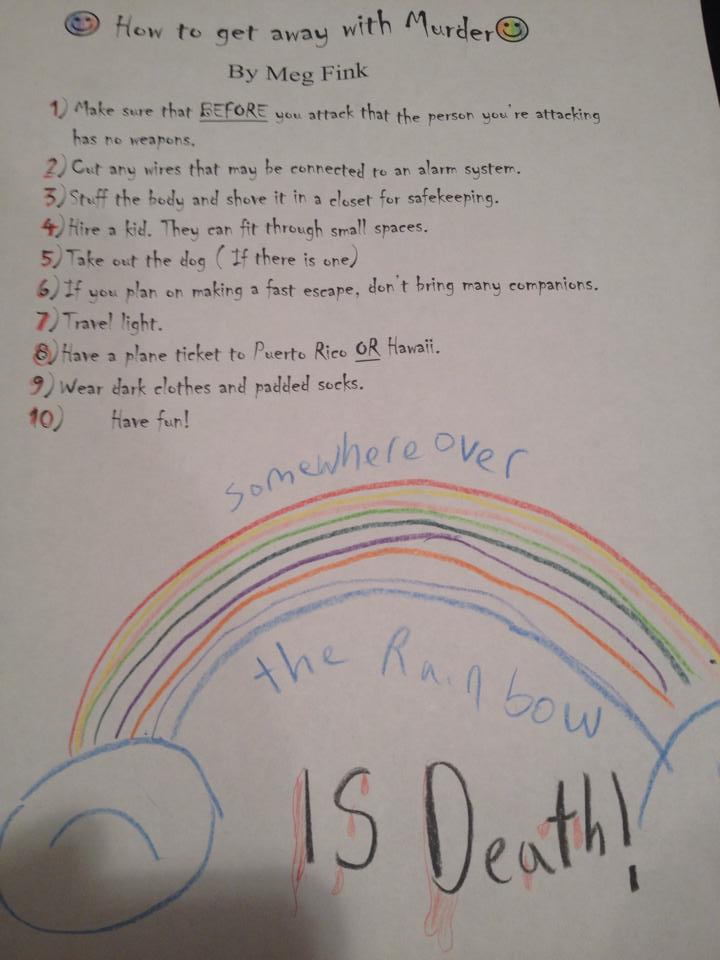 How to get away with Murder
By Meg Fink
1) Make sure that BEFORE you attack that the person you're attacking
has no weapons.
2) Cut any wires that may be connected to an alarm system.
3) Stuff the body and shove it in a closet for safekeeping.
4) Hire a kid. They can fit through small spaces.
5) Take out the dog ( If there is one)
6) If you plan on making a fast escape, don't bring many companions.
7) Travel light.
8) Have a plane ticket to Puerto Rico OR Hawaii.
9) Wear dark clothes and padded socks.
10) Have fun!
somewhere over
the Rainbow
IS Death!